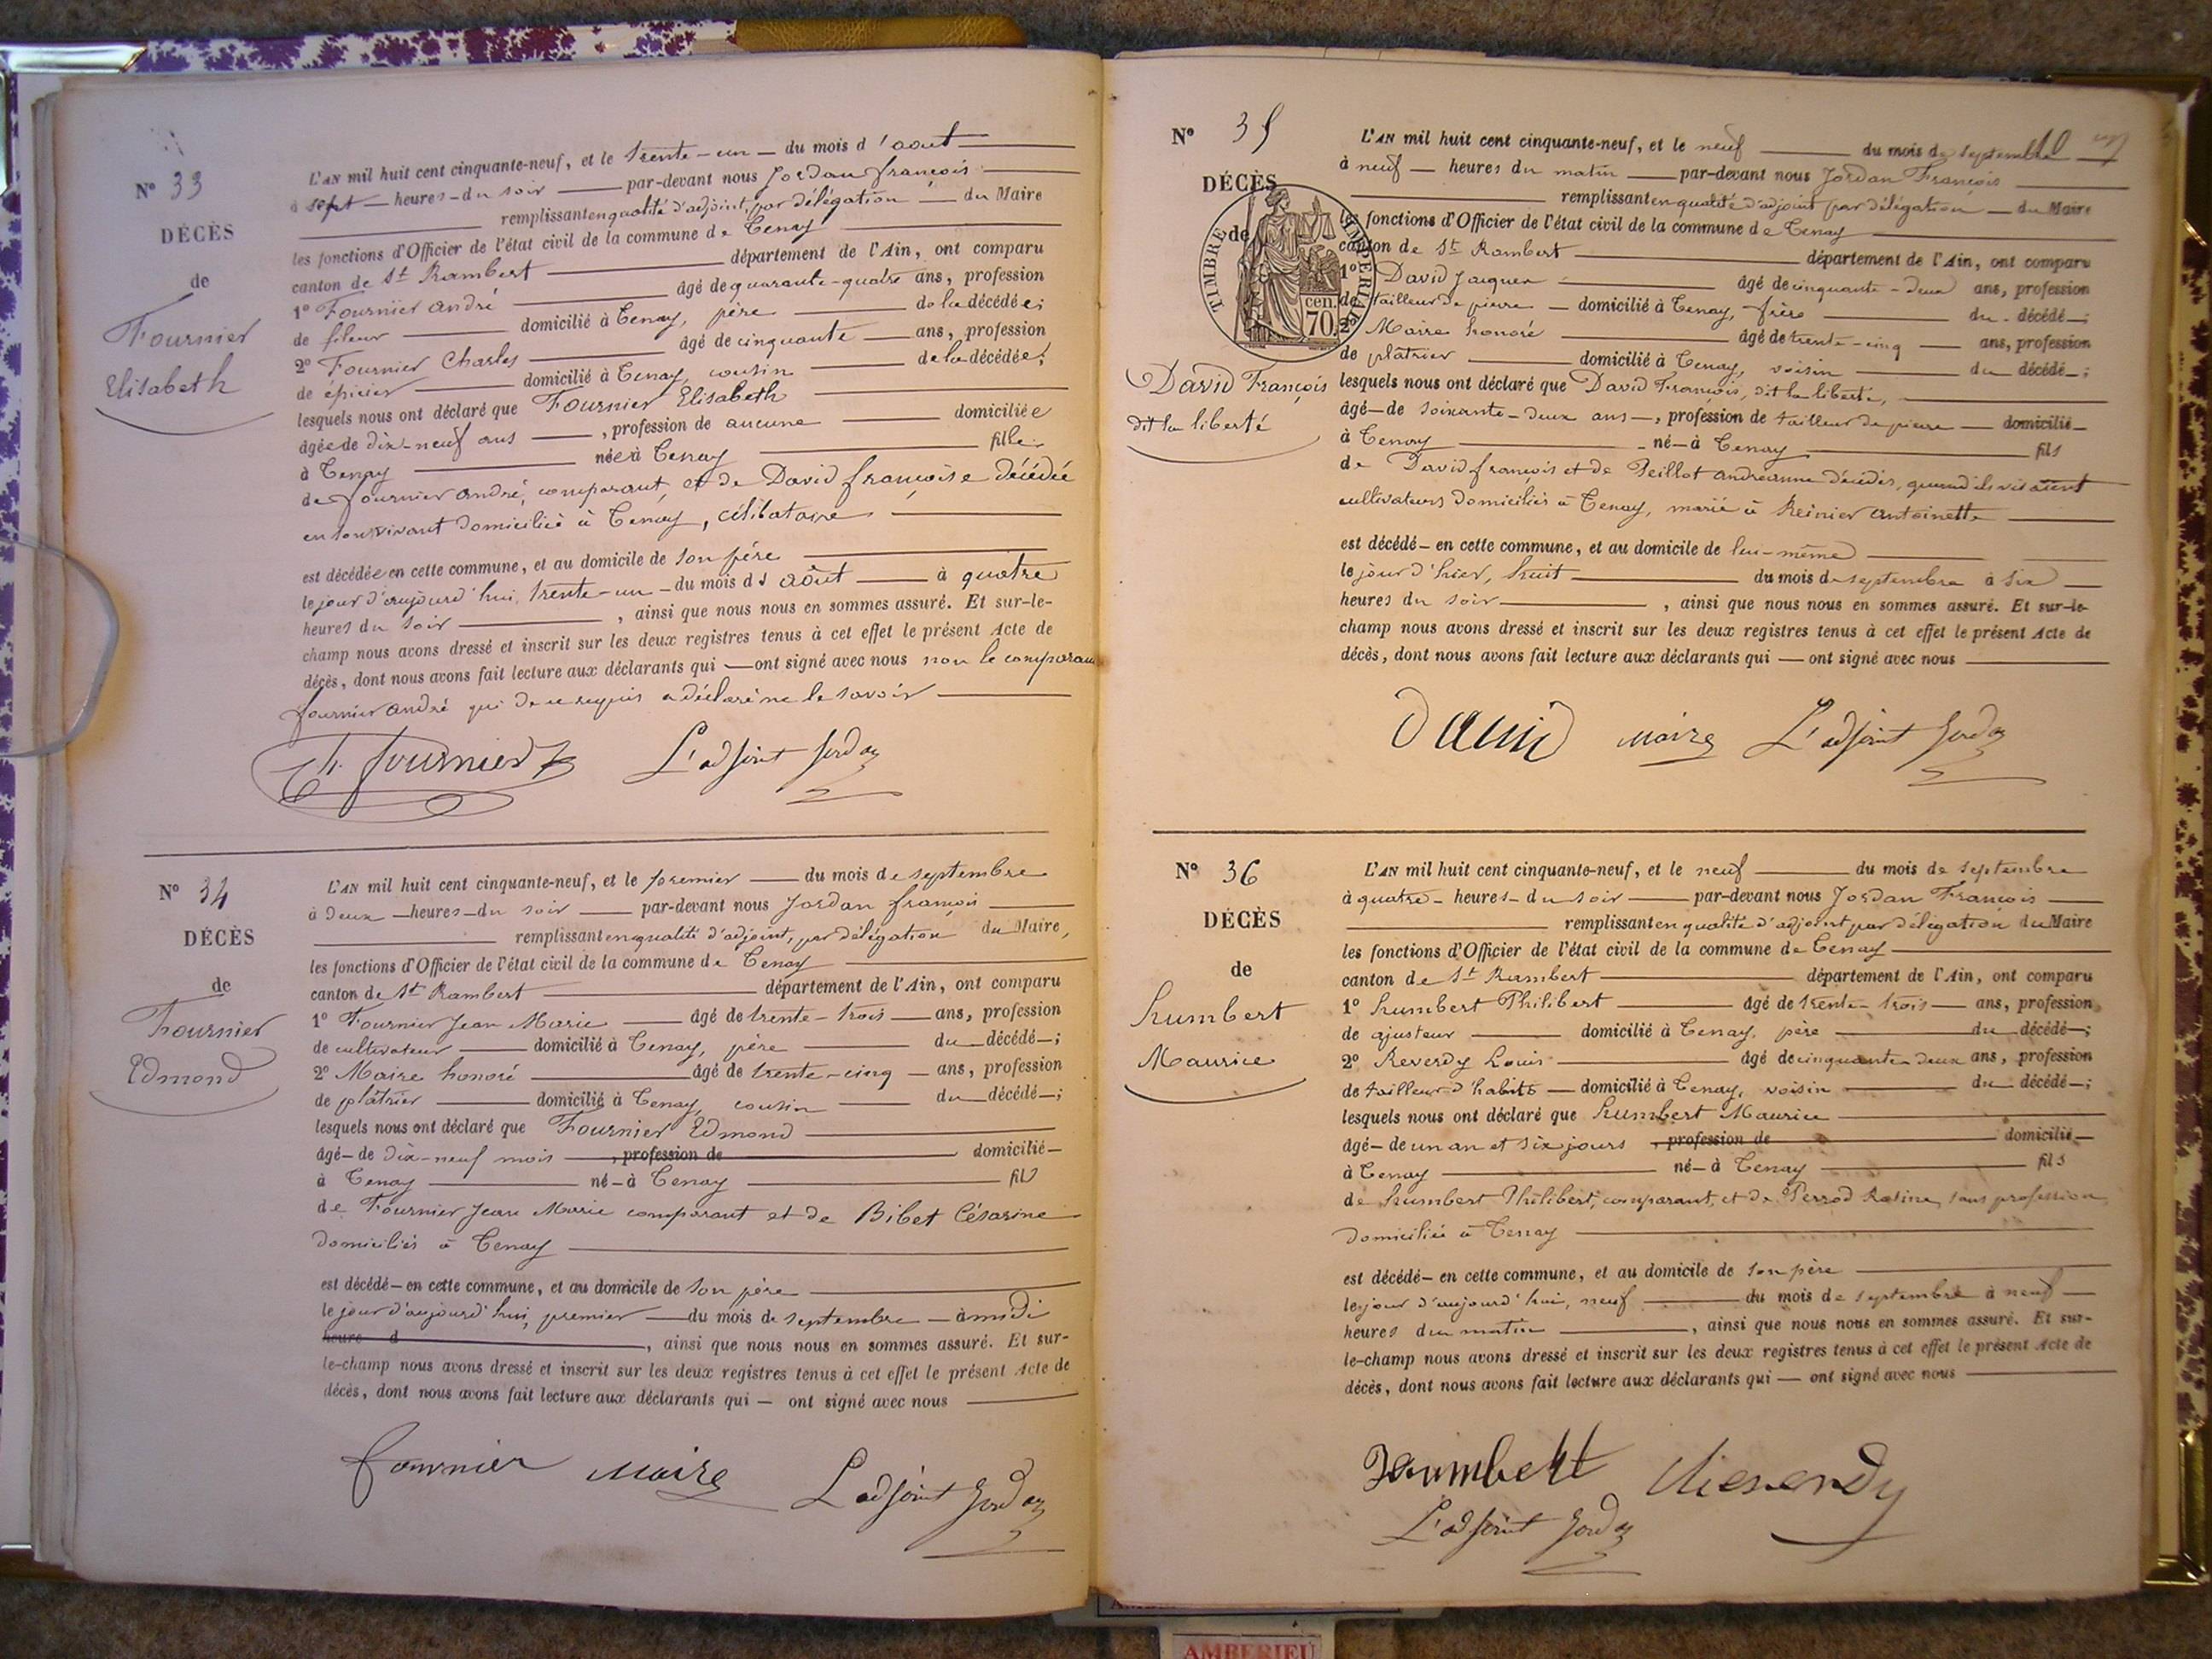 N° 33
DÉCÈS
de
Fournier
Elisabeth
L'AN mil huit cent cinquante-neuf, et le trente-un du mois d'aout
à sept heures du soir par-devant nous Jordan françois
remplissant en qualité d'adjoint, par délégation du Maire
les fonctions d'Officier de l'état civil de la commune de Tenay
canton de St Rambert département de l'Ain, ont comparu
1° Fournier andré âgé de quarante-quatre ans, profession
de fileur domicilié à Tenay, père de la décédée;
2° Fournier Charles âgé de cinquante ans, profession
de épicier domicilié à Tenay, cousin de la décédée;
lesquels nous ont déclaré que Fournier Elisabeth
âgée de dix-neuf ans, profession de aucune domiciliée
à Tenay née à Tenay fille
de fournier andré, comparant, et de David françoise décédée
en son vivant domiciliée à Tenay, célibataire
est décédée en cette commune, et au domicile de son père
le jour d'aujourd'hui, trente-un du mois d'août à quatre
heures du soir, ainsi que nous nous en sommes assuré. Et sur-le-
champ nous avons dressé et inscrit sur les deux registres tenus à cet effet le présent Acte de
décès, dont nous avons fait lecture aux déclarants qui ont signé avec nous non le comparant
fournier andré qui de ce requis a déclaré ne le savoir
Ch. fournier L'adjoint Jordan
N° 34
DÉCÈS
de
Fournier
Edmond
L'AN mil huit cent cinquante-neuf, et le premier du mois de septembre
à deux heures du soir par-devant nous Jordan françois
remplissant en qualité d'adjoint, par délégation du Maire,
les fonctions d'Officier de l'état civil de la commune de Tenay
canton de St Rambert département de l'Ain, ont comparu
1° Fournier Jean Marie âgé de trente-trois ans, profession
de cultivateur domicilié à Tenay, père du décédé;
2° Maire honoré âgé de trente-cinq ans, profession
de plâtrier domicilié à Tenay, cousin du décédé;
lesquels nous ont déclaré que Fournier Edmond
âgé de dix-neuf mois, profession de domicilié
à Tenay né à Tenay fils
de Fournier Jean Marie comparant et de Bibet Césarine
domiciliés à Tenay
est décédé en cette commune, et au domicile de son père
le jour d'aujourd'hui, premier du mois de septembre à midi
heure d, ainsi que nous nous en sommes assuré. Et sur-
le-champ nous avons dressé et inscrit sur les deux registres tenus à cet effet le présent Acte de
décès, dont nous avons fait lecture aux déclarants qui ont signé avec nous
fournier Maire L'adjoint Jordan
10
N° 35
DÉCÈS
de
TIMBRE IMPERIAL
70 cen.
David François
dit la liberté
L'AN mil huit cent cinquante-neuf, et le neuf du mois de septembre
à neuf heures du matin par-devant nous Jordan François
remplissant en qualité d'adjoint par délégation du Maire
les fonctions d'Officier de l'état civil de la commune de Tenay
canton de St Rambert département de l'Ain, ont comparu
1° David Jacques âgé de cinquante-deux ans, profession
de tailleur de pierre domicilié à Tenay, frère du décédé;
2° Maire honoré âgé de trente-cinq ans, profession
de plâtrier domicilié à Tenay, voisin du décédé;
lesquels nous ont déclaré que David François, dit la liberté,
âgé de soixante-deux ans, profession de tailleur de pierre domicilié
à Tenay né à Tenay fils
de David françois et de Peillot andréanne décédés, quand ils vivaient
cultivateurs domiciliés à Tenay, marié à Reinier antoinette
est décédé en cette commune, et au domicile de lui-même
le jour d'hier, huit du mois de septembre à six
heures du soir, ainsi que nous nous en sommes assuré. Et sur-le-
champ nous avons dressé et inscrit sur les deux registres tenus à cet effet le présent Acte de
décès, dont nous avons fait lecture aux déclarants qui ont signé avec nous
David Maire L'adjoint Jordan
N° 36
DÉCÈS
de
humbert
Maurice
L'AN mil huit cent cinquante-neuf, et le neuf du mois de septembre
à quatre heures du soir par-devant nous Jordan François
remplissant en qualité d'adjoint par délégation du Maire
les fonctions d'Officier de l'état civil de la commune de Tenay
canton de St Rambert département de l'Ain, ont comparu
1° humbert Philibert âgé de trente-trois ans, profession
de ajusteur domicilié à Tenay, père du décédé;
2° Reverdy Louis âgé de cinquante-deux ans, profession
de tailleur d'habits domicilié à Tenay, voisin du décédé;
lesquels nous ont déclaré que humbert Maurice
âgé de un an et six jours, profession de domicilié
à Tenay né à Tenay fils
de humbert Philibert, comparant, et de Perrod Rosine, sans profession
domiciliée à Tenay
est décédé en cette commune, et au domicile de son père
le jour d'aujourd'hui, neuf du mois de septembre à neuf
heures du matin, ainsi que nous nous en sommes assuré. Et sur-
le-champ nous avons dressé et inscrit sur les deux registres tenus à cet effet le présent Acte de
décès, dont nous avons fait lecture aux déclarants qui ont signé avec nous
humbert Reverdy
L'adjoint Jordan
AMBERIEU